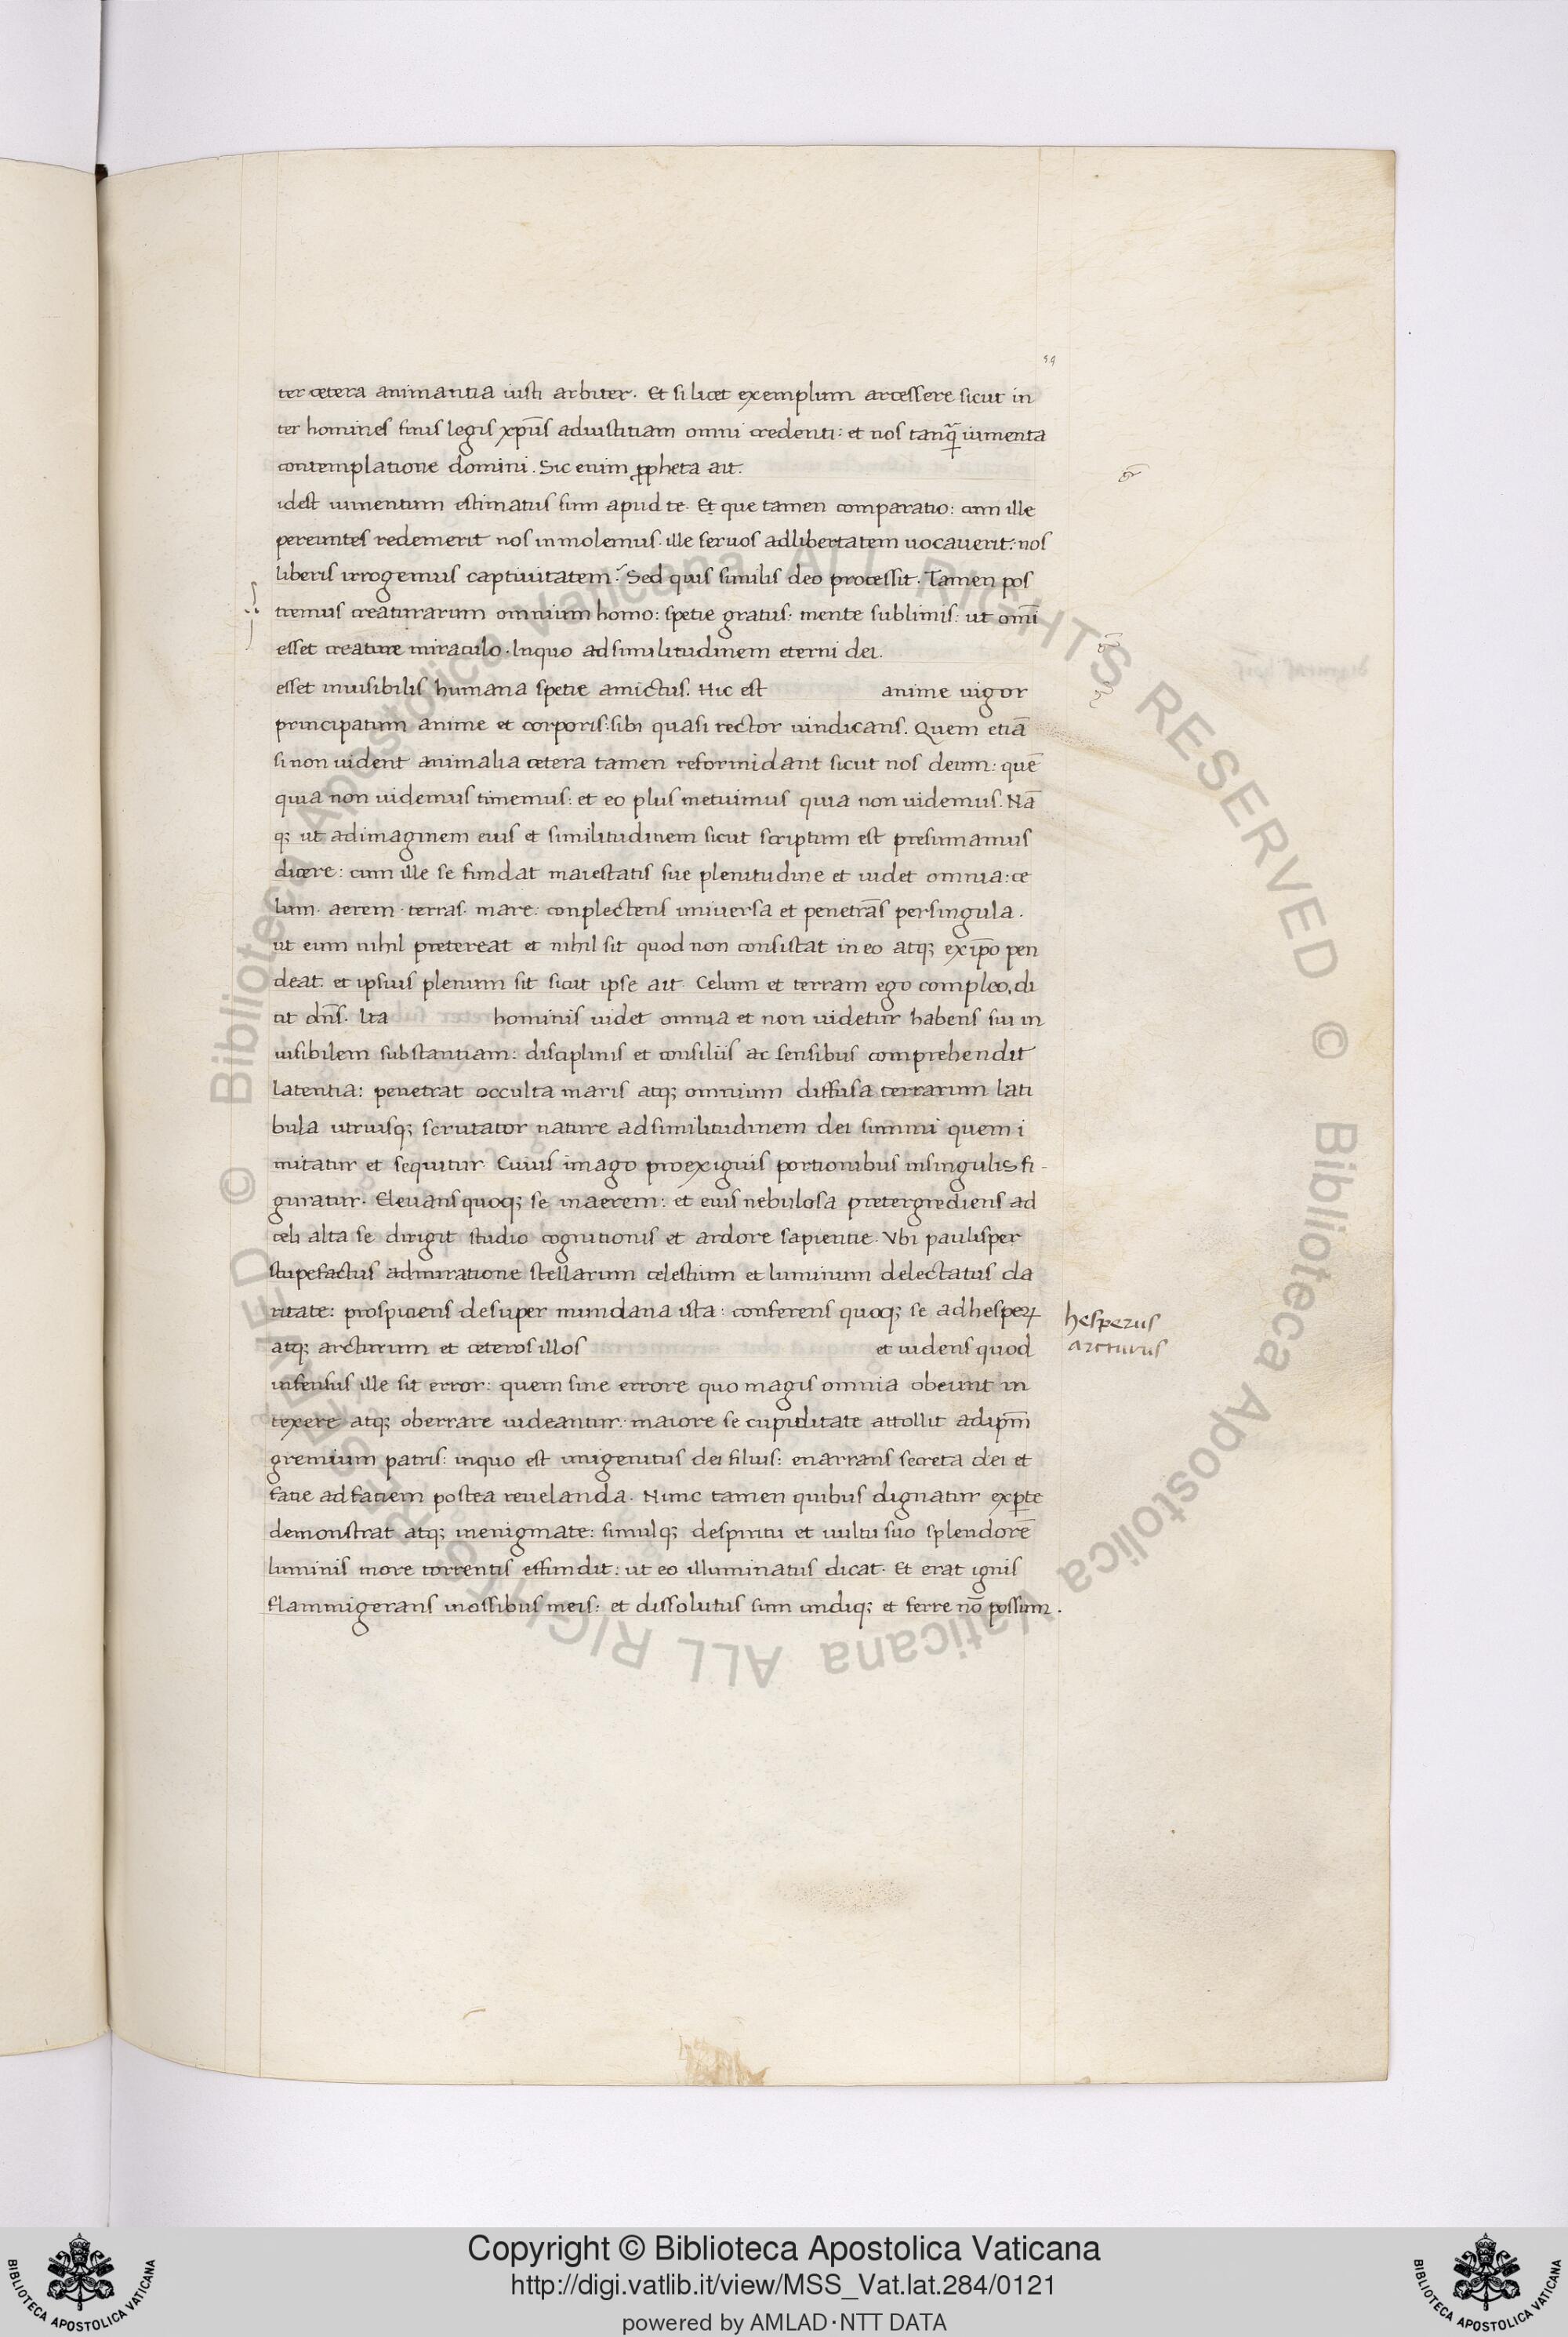 59
ter cetera animantia iusti arbiter. Et si licet exemplum arcessere sicut in
ter homines finis legis xp̄us adiustitiam omni credenti: et nos tanq̄ iumenta
contemplatione domini. Sic enim ꝓpheta ait.
idest iumentum estimatus sum apud te. Et que tamen comparatio: cum ille
pereuntes redemerit nos inmolemus. ille seruos adlibertatem uocauerit: nos
liberis irrogemus captiuitatem? Sed quis similis deo processit. Tamen pos
tremus creaturarum omnium homo: spetie gratus. mente sublimis: ut omī
esset creature miraculo. Inquo adsimilitudinem eterni dei.
esset inuisibilis humana spetie amictus. Hic est anime uigor
principatum anime et corporis: sibi quasi rector uindicans. Quem etiā
si non uident animalia cetera tamen reformidant sicut nos deum: quē
quia non uidemus timemus: et eo plus metuimus quia non uidemus. Nā
q; ut adimaginem eius et similitudinem sicut scriptum est presumamus
dicere: cum ille se fundat maiestatis sue plenitudine et uidet omnia: ce
lum. aerem. terras. mare: conplectens uniuersa et penetrās persingula.
ut eum nihil pretereat et nihil sit quod non consistat in eo atq; exip̄o pen
deat. et ipsius plenum sit sicut ipse ait. Celum et terram ego compleo, di
cit dn̄s. Ita hominis uidet omnia et non uidetur habens sui in
uisibilem substantiam: disciplinis et consiliis ac sensibus comprehendit
latentia: penetrat occulta maris atq; omnium diffusa terrarum lati
bula utriusq; scrutator nature adsimilitudinem dei summi quem i
mitatur et sequitur. Cuius imago proexiguis portionibus insingulis fi-
guratur. Eleuans quoq; se inaerem: et eius nebulosa pretergrediens ad
celi alta se dirigit studio cognitionis et ardore sapientie. Vbi paulisper
stupefactus admiratione stellarum celestium et luminum delectatus cla
ritate: prospiciens desuper mundana ista: conferens quoq; se adhesperꝝ
atq; arcturum et ceteros illos et uidens quod
infensus ille sit error: quem sine errore quo magis omnia obeunt in
texere atq; oberrare uideantur. maiore se cupiditate attollit adip̄m
gremium patris: inquo est unigenitus dei filius: enarrans secreta dei et
facie adfaciem postea reuelanda. Nunc tamen quibus dignatur exꝑte
demonstrat atq; inenigmate: simulq; despiritu et uultu suo splendorē
luminis more torrentis effundit: ut eo illuminatus dicat. Et erat ignis
flammigerans inossibus meis: et dissolutus sum undiq; et ferre nō possum.
hesperus
arcturus
Copyright © Biblioteca Apostolica Vaticana
http://digi.vatlib.it/view/MSS_Vat.lat.284/0121
powered by AMLAD·NTT DATA
© Biblioteca Apostolica Vaticana ALL RIGHTS RESERVED © Biblioteca Apostolica Vaticana ALL RIGHTS RESERVED
BIBLIOTECA APOSTOLICA VATICANA
BIBLIOTECA APOSTOLICA VATICANA